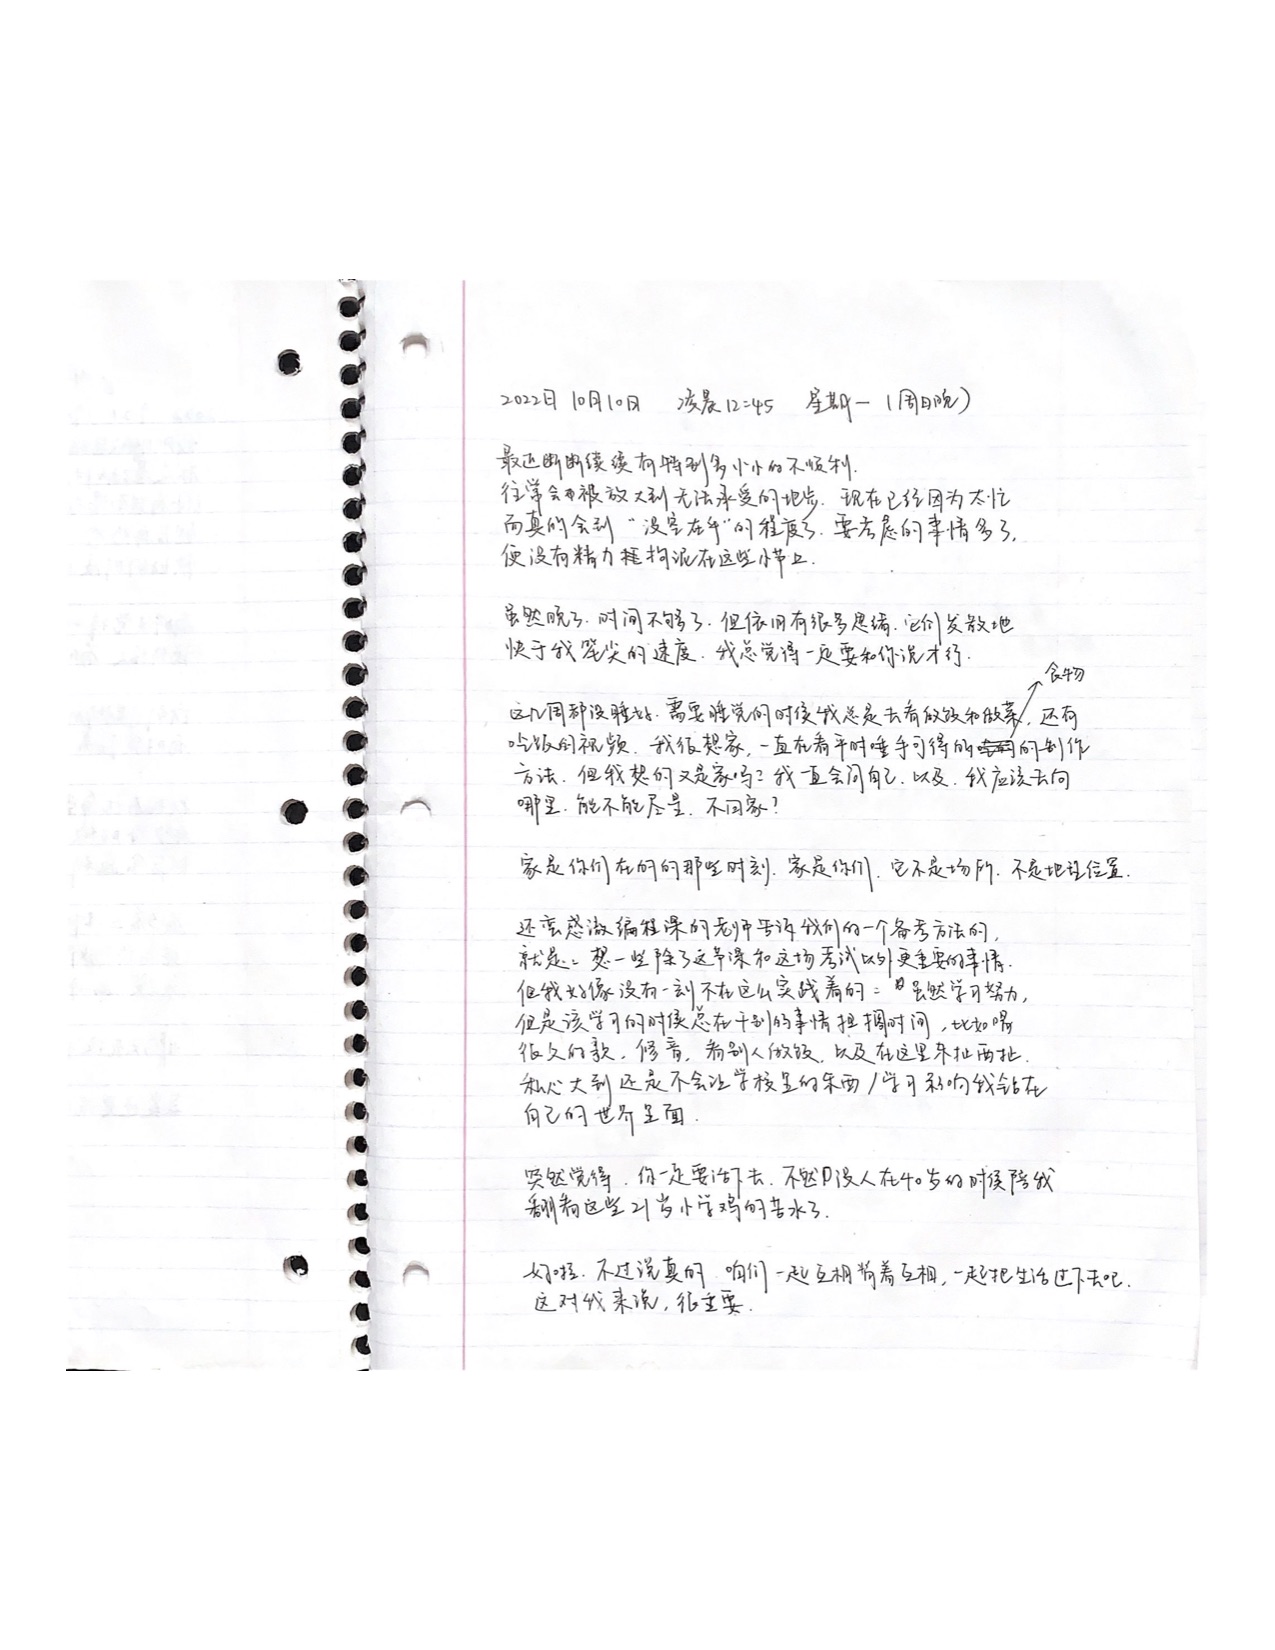 2022日 10月10日 凌晨12:45 星期一（周日晚）
最近断断续续有特别多小小的不顺利.
往常会被放大到无法承受的地步. 现在已经因为太忙
而真的会到“没空在乎”的程度了. 要考虑的事情多了,
便没有精力拘泥在这些小节上.
虽然晚了. 时间不够了. 但依旧有很多思绪. 它们发散地
快于我笔尖的速度. 我总觉得一定要和你说才行.
食物
这几周都没睡好. 需要睡觉的时候我总是去看做饭和做菜, 还有
吃饭的视频. 我很想家, 一直在看平时唾手可得的的制作
方法. 但我想的又是家吗? 我一直会问自己. 以及, 我应该去向
哪里. 能不能尽量. 不回家?
家是你们在的的那些时刻. 家是你们. 它不是场所. 不是地理位置.
还蛮感激编程课的老师告诉我们的一个备考方法的,
就是: 想一些除了这节课和这场考试以外更重要的事情.
但我好像没有一刻不在这么实践着的: 虽然学习努力,
但是该学习的时候总在干别的事情担搁时间, 比如唱
很久的歌, 修音, 看别人做饭, 以及在这里东扯西扯.
私心大到还是不会让学校里的东西/学习影响我钻在
自己的世界里面.
突然觉得, 你一定要活下去, 不然没人在40岁的时候陪我
翻看这些21岁小学鸡的苦水了.
好啦, 不过说真的, 咱们一起互相背着互相, 一起把生活过下去吧.
这对我来说, 很重要.